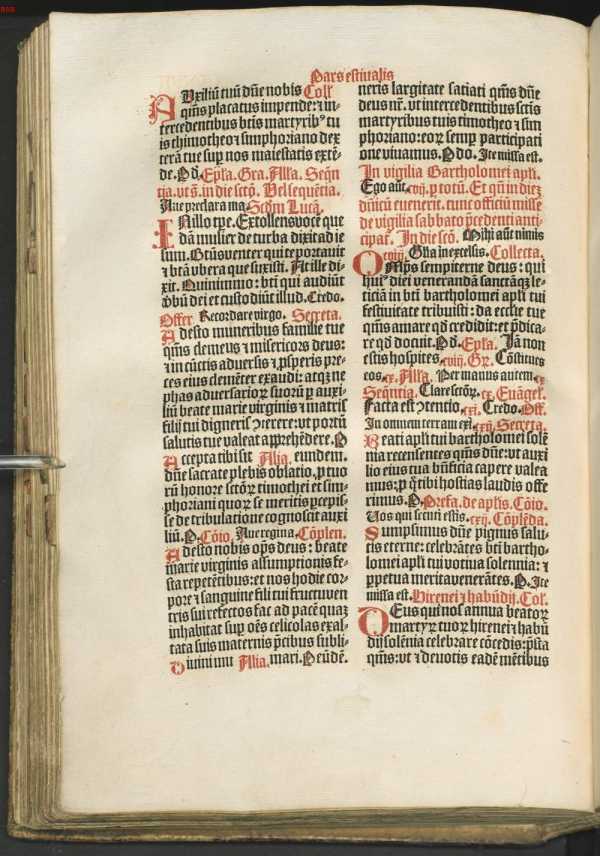 Pars estivalis
AUxiliū tuū dn̄e nobis Coll̕
qm̄s placatus impende: ⁊ in-
tercedentibus btīs martyribꝰ tu
is thimotheo ⁊ simphoriano dex
terā tue sup nos maiestatis extē-
de. P. d. Ep̄ła. Gra. Alła. Seqn̄
tia. vt s̄. in die scto. Vel sequētia.
Aue preclara ma. Scdm Lucā.
IN illo tp̄e. Extollens vocē que
dā mulier de turba dixit ad ie
sum. Btūs venter qui te portauit
⁊ btā vbera que suxisti. At ille di-
xit. Quinimmo: btī qui audiūt
vbū dei et custodiūt illud. Credo.
Offer. Recordare virgo. Secreta.
Adesto muneribus familie tue
qm̄s clemens ⁊ misericors deus:
⁊ in cūctis aduersis ⁊ ꝓsperis pre-
ces eius clemēter exaudi: atqꝫ ne
phas aduersarioꝝ suorū p auxi-
liū beate marie virginis ⁊ matris
filij tui digneris ꝯterere: vt portū
salutis tue valeat apprehēdere. P.
Accepta tibi sit Alia. eundem.
dn̄e sacrate plebis oblatio. p tuo
rū honore sctoꝝ timothei et sim-
phoriani quoꝝ se meritis pcepis-
se de tribulatione cognoscit auxi
liū. P. Cōio. Aue regina. Cōplen.
Adesto nobis op̄s deus: beate
marie virginis assumptionis fe-
sta repetētibus: et nos hodie cor-
pore ⁊ sanguine filij tui fructuven
tris sui refectos fac ad pacē quaꝫ
inhabitat sup oēs celicolas exal-
tata suis maternis p̄cibus subli-
Diuini mu Alia. mari. P. eūdē.
neris largitate satiati qm̄s dn̄e
deus nr̄. vt intercedentibus sctis
martyribus tuis timotheo ⁊ sim
phoriano: eoꝝ semꝑ participati
one viuamus. P. do. Ite missa est.
In vigilia Bartholomei apłi.
Ego aūt. cvij. p totū. Et qn̄ in diez
dn̄icū euenerit. tunc officiū misse
de vigilia sabbato p̄cedenti anti
cipat̄. In die scto. Mihi aūt nimis
cviij. Glīa in excelsis. Collecta.
OMps sempiterne deus: qui
huiꝰ diei venerandā sanctāqꝫ le-
ticiā in btī bartholomei apłi tui
festiuitate tribuisti: da ecctie tue
qm̄s amare qd credidit: et p̄dica-
re qd docuit. P. d. Ep̄ła. Iā non
estis hospites. cviij. Gr. Cōstitues
eos. cx. Alła. Per manus autem. cx
Seqn̄tia. Clare sctoꝝ. cx. Euāgeł.
Facta est ꝯtentio. cxi. Credo. Off.
In omnem terram exi. cxij. Secreta.
Beati apłi tui bartholomei solē
nia recensentes qm̄s dn̄e: vt auxi
lio eius tua bn̄ficia capere valea
mus: p q̄ tibi hostias laudis offe
rimus. P. Prefa. de aplis. Cōio.
Vos qui secuti estis. cxij. Cōplēda.
Sumpsimus dn̄e pignus salu-
tis eterne: celebrātes btī bartho-
lomei apłi tui votiua solennia: ⁊
ꝑpetua merita venerātes. P. Ite
missa est. Hirenei ⁊ habūdij. Coł.
DEus qui nos annua beatoꝝ
martyꝝ tuoꝝ hirenei ⁊ habū
dij solēnia celebrare cōcedis: p̄sta
qm̄s: vt ⁊ deuotis eadē mētibus